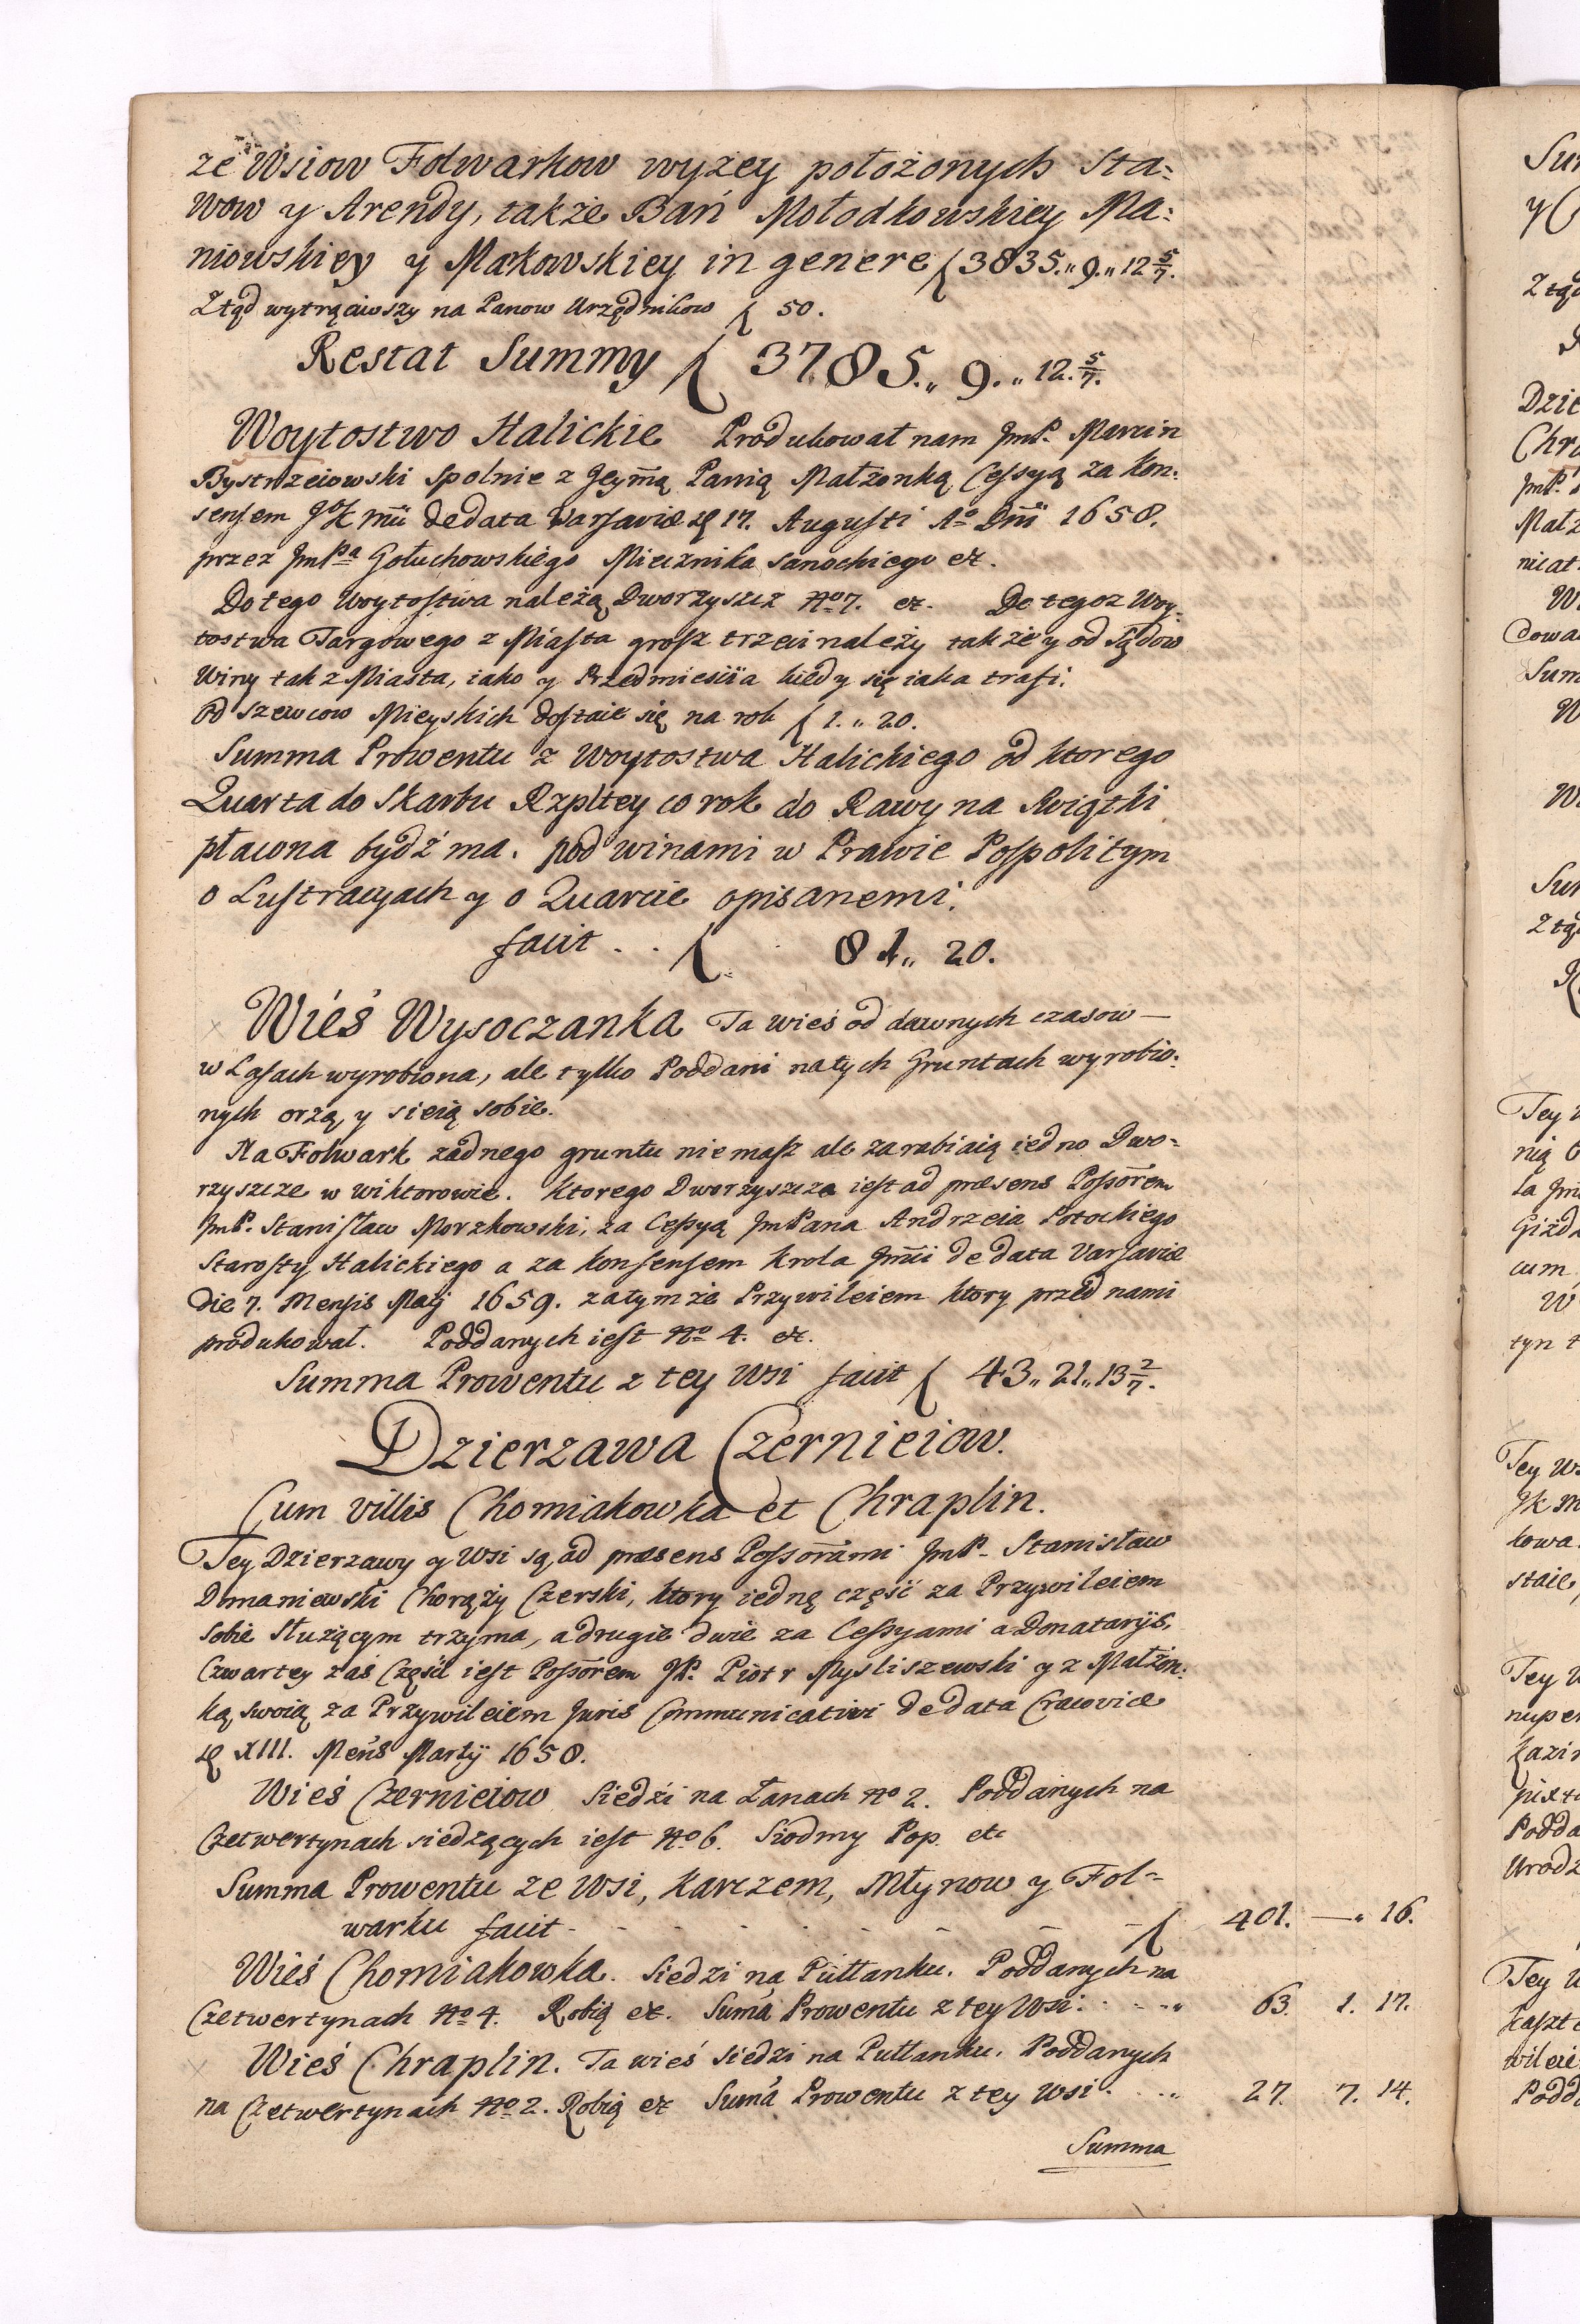 ze Wsiow Folwarkow wyzey położonych Sta:
wow y Arendy, także Bań Mołodkowskiey Ma:
niowskiey y Markowskiey in genere f 3835.„ 9.„ 12 5/7.
Ztąd wytrąciwszy na Panow Urzędnikow f 50.
Restat Summy f 3785.„ 9.„ 12. 5/7.
Woytostwo Halickie Produkował nam JmP. Marcin
Bystrzeiowski spolnie z Jeymą Panią Małżonką Cessyą za kon:
sensem JoK mći de data Varsaviæ d 17. Augusti Ao Dñi 1658.
przez JmPa Gołuchowskiego Miecznika Sanockiego etc.
Do tego Woytostwa należą Dworzyszcz No 7. etc. Do tegoz Woy:
tostwa Targowego z Miasta grosz trzeci należy także y od Sądow
Winy tak z Miasta, iako y Przedmieścia kiedy się iaka trafi.
Od Szewcow Mieyskich dostaie się na rok f 1.„ 20.
Summa Prowentu z Woytostwa Halickiego od ktorego
Quarta do Skarbu Rzpltey co rok do Rawy na Swiątki
płacona bydź ma. pod winami w Prawie Pospolitym
o Lustracyach y o Quarcie opisanemi.
facit . . f 81„ 20.
Wieś Wysoczanka Ta wieś od dawnych czasow —
w Lasach wyrobiona, ale tylko Poddani na tych Gruntach wyrobio:
nych orzą y sieią sobie.
Na Folwark żadnego gruntu niemasz ale zarabiaią iedno Dwo:
rzyszcze w Wiktorowie. Ktorego Dworzyszcza iest ad præsens Possorem
JmP. Stanisław Morzkowski, za Cessyą JmPana Andrzeia Potockiego
Starosty Halickiego a za konsensem Krola Jmći de data Varsaviæ
die 7. Mensis Maij 1659. za tymże Przywileiem ktory przed nami
produkował. Poddanych iest No 4. etc.
Summa Prowentu z tey Wsi facit f 43„ 21„ 13 2/7.
Dzierzawa Czernieiow.
Cum villis Chomiakowka et Chraplin.
Tey Dzierzawy y Wsi są ad præsens Possorami JmP. Stanisław
Domaniewski Chorąży Czerski, ktory iedną część za Przywileiem
sobie służącym trzyma, a drugie dwie za Cessyami a Donatarijs,
Czwartey zaś Części iest Possorem JP. Piotr Mysliszewski y z Małżon:
ką swoią za Przywileiem Juris Communicativi de data Cracoviæ
d XIII. Mens Martij 1658.
Wieś Czernieiow siedźi na Łanach No 2. Poddanych na
Czetwertynach siedzących iest No 6. Siodmy Pop. etc
Summa Prowentu ze Wsi, Karczem, Młynow y Fol=
warku facit . . . . f 401. —„ 16.
Wieś Chomiakowka. Siedzi na Pułłanku. Poddanych na
Czetwertynach No 4. Robią etc. Suma Prowentu z tey Wsi . . . „ 63. 1. 17.
Wieś Chraplin. Ta wieś siedzi na Pułłanku. Poddanych
na Czetwertynach No 2. Robią etc Suma Prowentu z tey Wsi . . . „ 27. 7. 14.
Summa